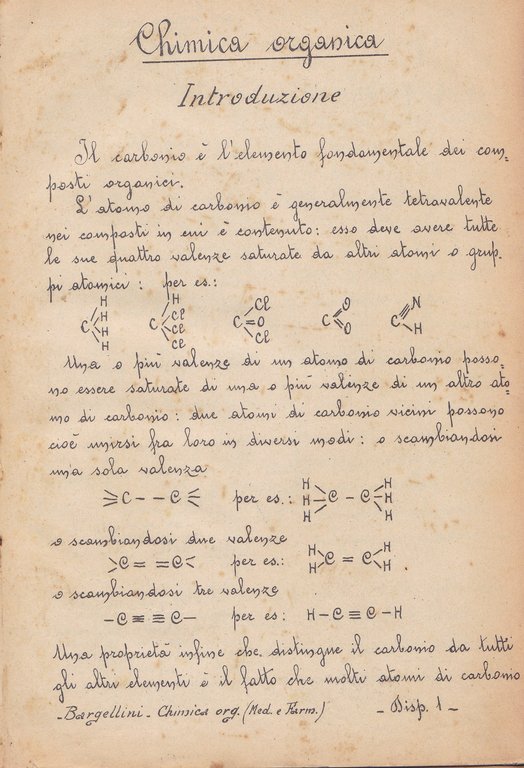 Chimica organica
Introduzione
Il carbonio è l'elemento fondamentale dei com=
posti organici.
L'atomo di carbonio è generalmente tetravalente
nei composti in cui è contenuto: esso deve avere tutte
le sue quattro valenze saturate da altri atomi o grup=
pi atomici: per es.:
C H H H H   C H Cl Cl Cl   C Cl =O Cl   C O O   C≡N H
Una o più valenze di un atomo di carbonio posso=
no essere saturate di una o più valenze di un altro ato=
mo di carbonio: due atomi di carbonio vicini possono
cioè unirsi fra loro in diversi modi: o scambiandosi
una sola valenza
≡C - - C≡ per es.: H H H C - C H H H
o scambiandosi due valenze
>C= =C< per es.: H H C = C H H
o scambiandosi tre valenze
-C≡ ≡C- per es: H-C≡C-H
Una proprietà infine che distingue il carbonio da tutti
gli altri elementi è il fatto che molti atomi di carbonio
- Bargellini - Chimica org. (Med. e Farm.) - Disp. 1 -